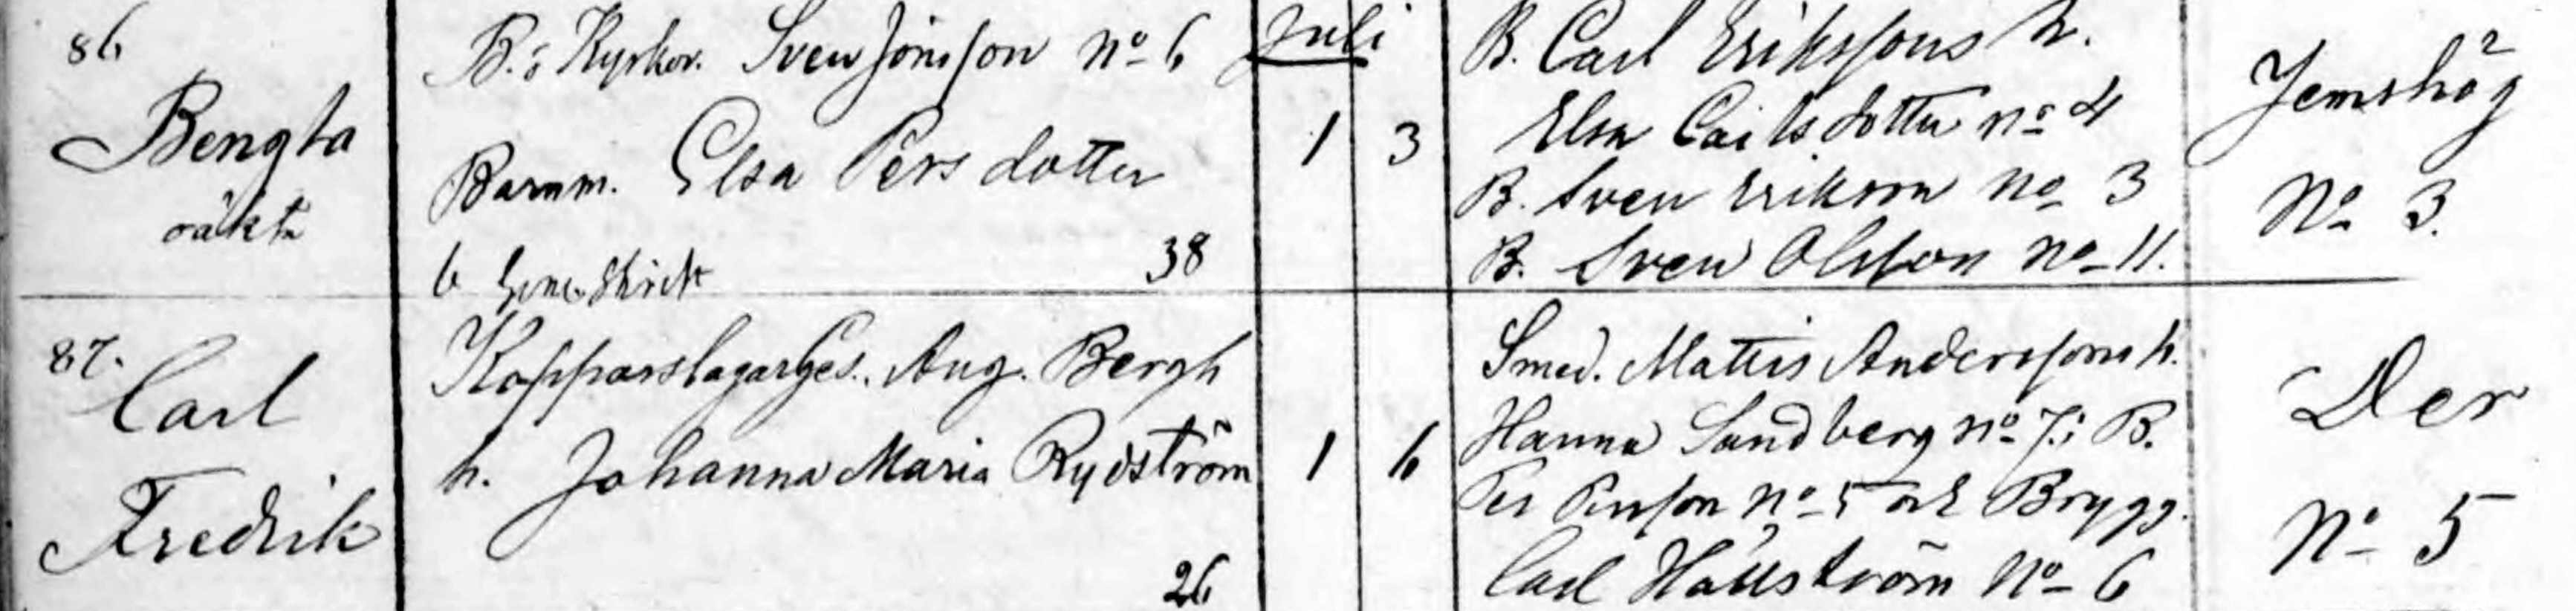 86
Bengta
oäkta
B.: Kyrkov. Sven Jönsson No 6
Barnm. Elsa Persdotter
38
Juli
1 3
B. Carl Erikssons h.
Elsa Carlsdotter no 4
B. Sven Eriksson No 3
B. Sven Olsson No 11.
Jemshög
No 3.
87.
Carl
Fredrik
Kopparslagarges. Aug. Bergh
h. Johanna Maria Rydström
26
1 6
Smed. Mattis Anderssons h.
Hanna Sandberg No 7; B.
Per Persson No 5 och Brygg.
Carl Hällström No 6
Der
No 5